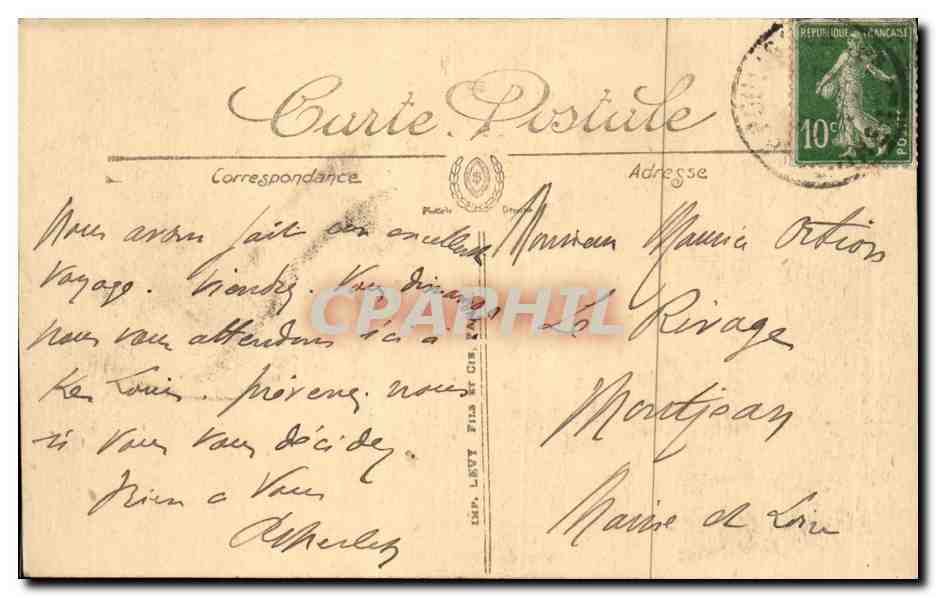 RÉPUBLIQUE FRANÇAISE
10 c
POSTES
Carte Postale
Correspondance
Adresse
Nous avons fait un excellent
voyage. Viendrez Vous dimanche
nous vous attendons ici à
Ker Louis. prévenez nous
si Vous Vous décidez.
Bien à Vous
Monsieur Maurice
Le Rivage
Montjean
Maine et Loire
IMP. LEVY FILS ET CIE, PARIS
CPAPHIL